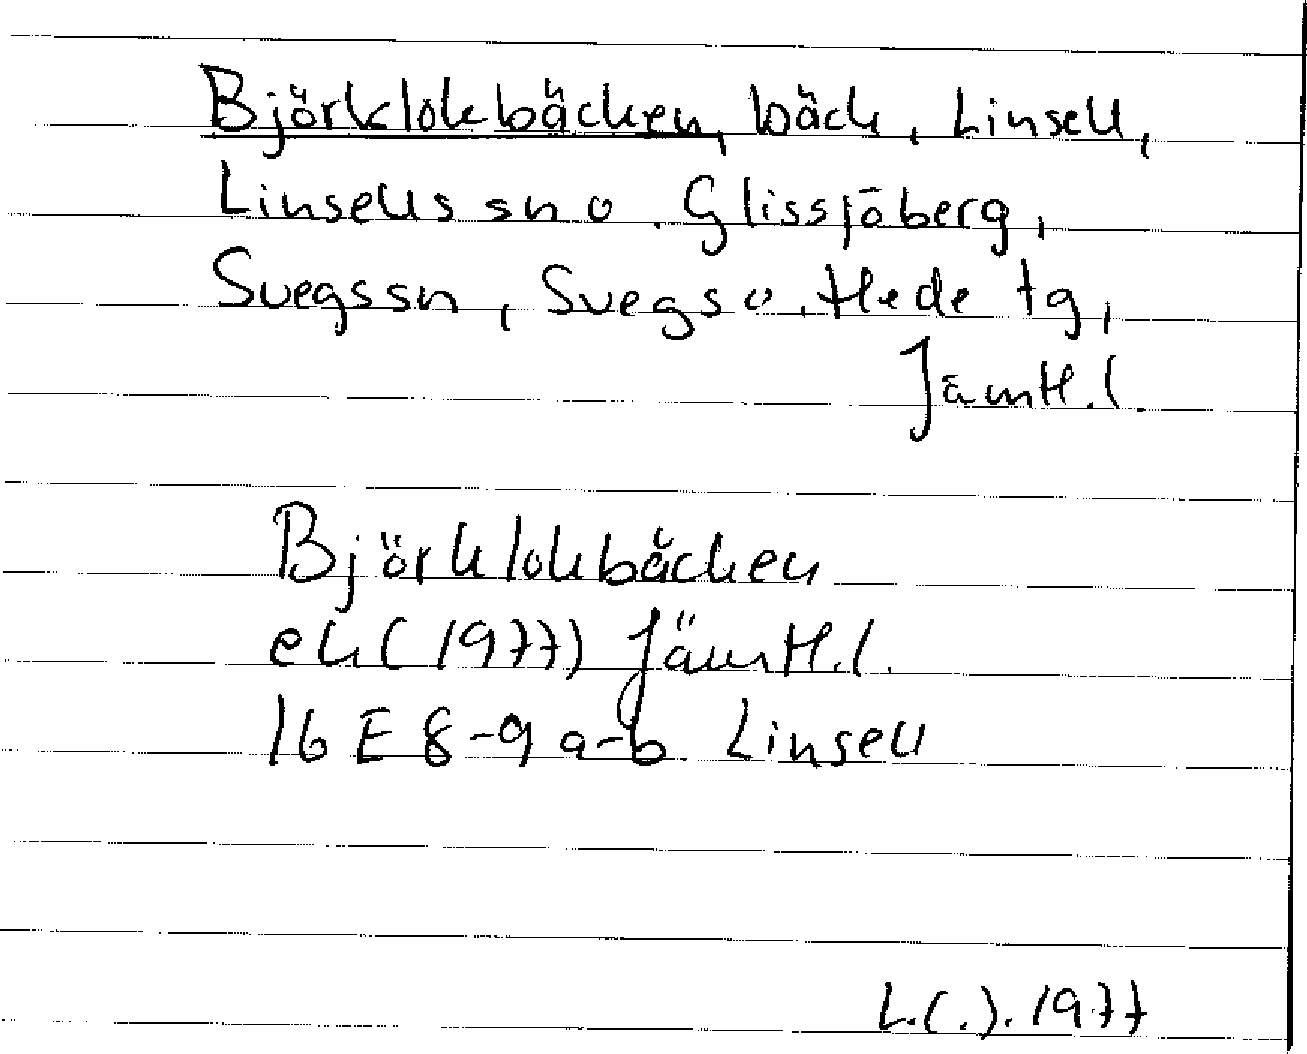 Björklokbäcken, bäck, Linsell,
Linsells sn o. Glissjöberg,
Svegs sn, Svegs o. Hede tg,
Jämtl. l.
Björklokbäcken
ek (1977) Jämtl. l.
16 E 8-9 a-b Linsell
L.(.). 1977